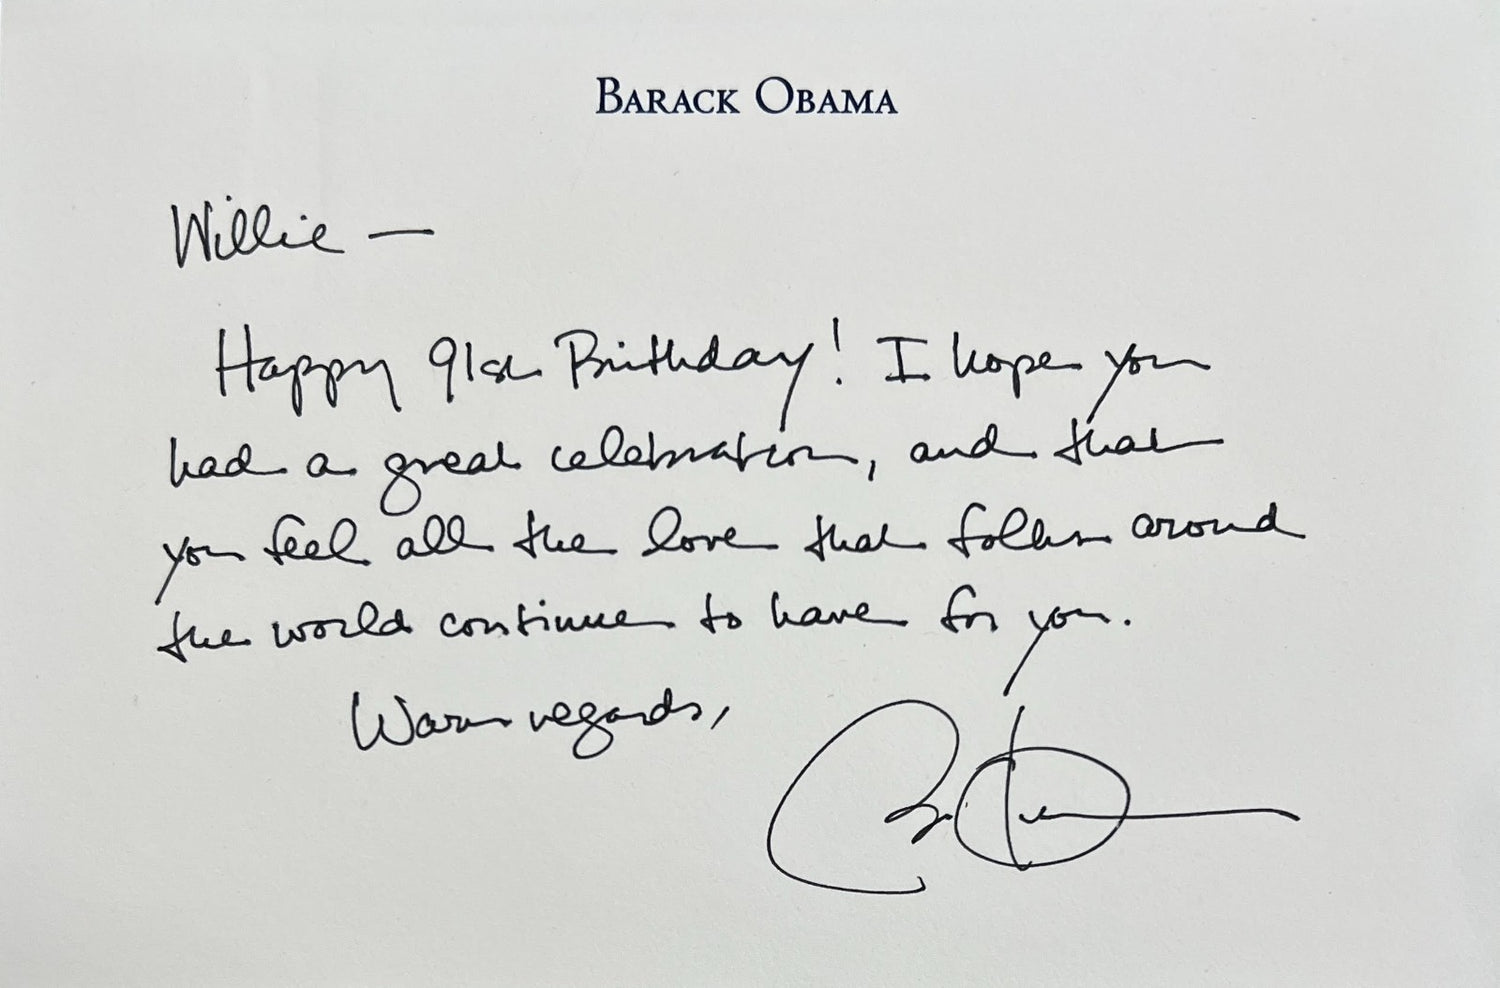 BARACK OBAMA
Willie —
Happy 91st Birthday! I hope you
had a great celebration, and that
you feel all the love that folks around
the world continue to have for you.
Warm regards,